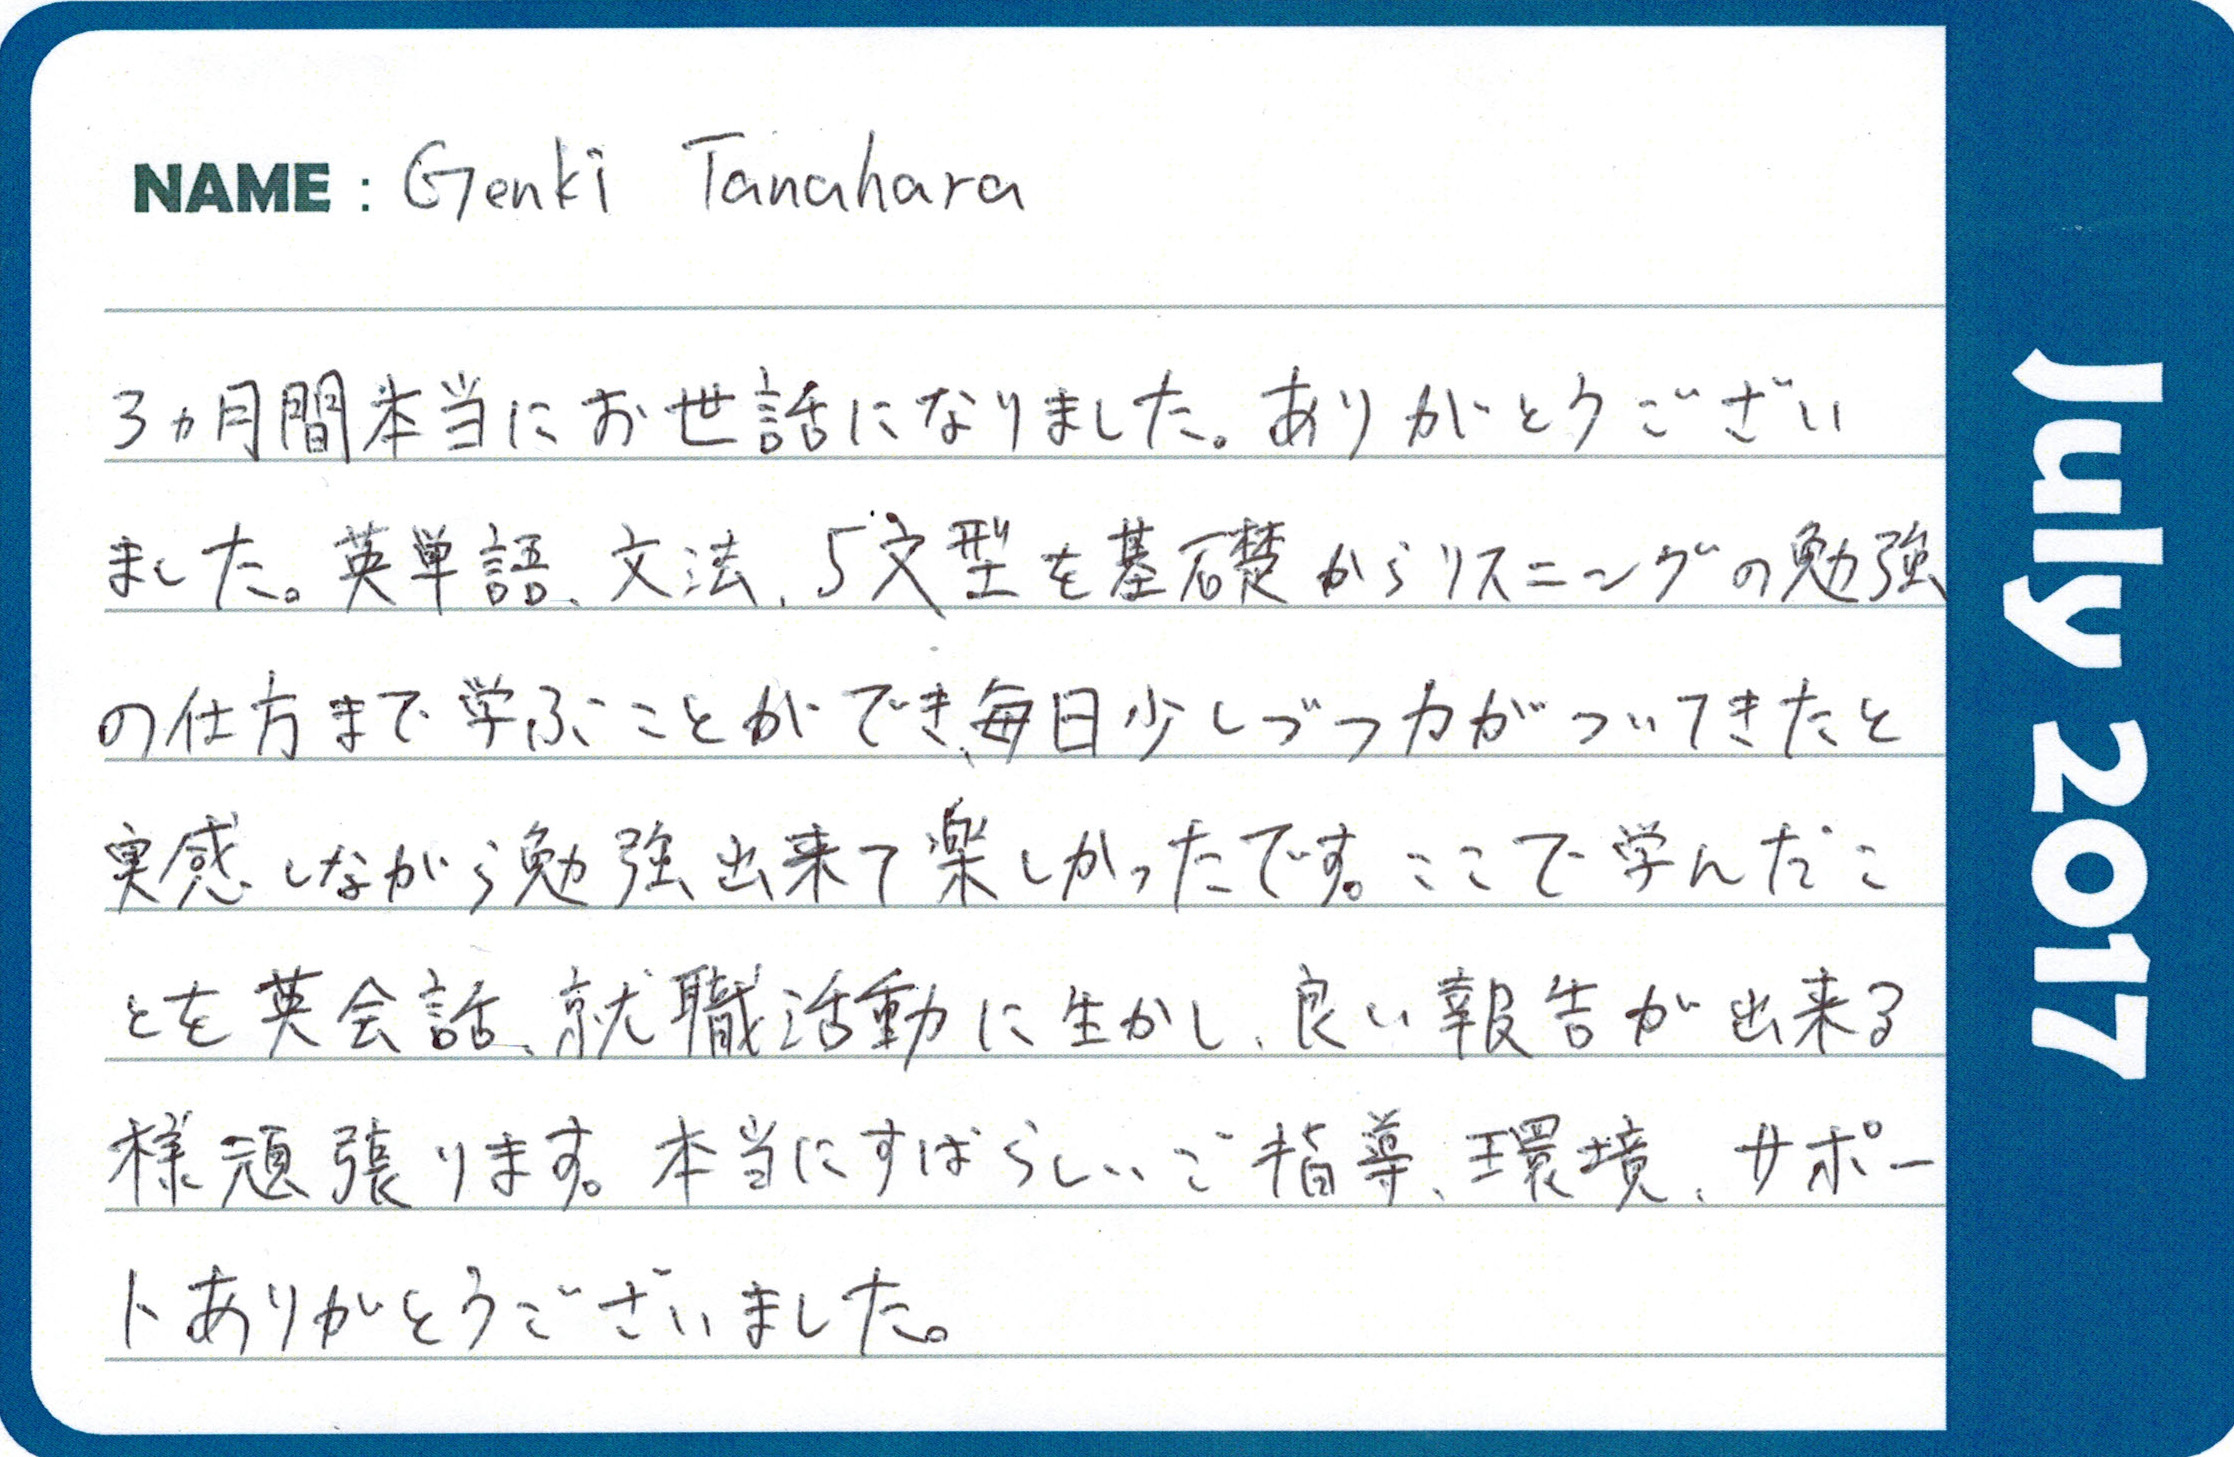 NAME : Genki Tanahara
3ヵ月間本当にお世話になりました。ありがとうござい
ました。英単語、文法、5文型を基礎からリスニングの勉強
の仕方まで学ぶことができ、毎日少しづつ力がついてきたと
実感しながら勉強出来て楽しかったです。ここで学んだこ
とを英会話、就職活動に生かし、良い報告が出来る
様頑張ります。本当にすばらしいご指導、環境、サポー
トありがとうございました。
July 2017